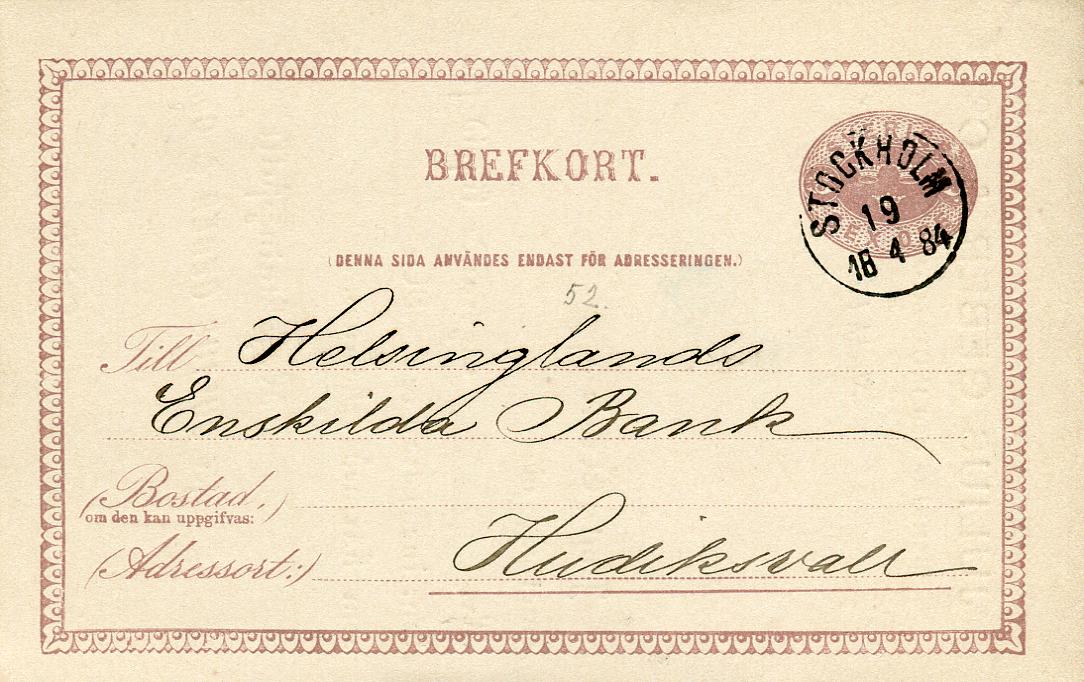 BREFKORT.
STOCKHOLM
19
18 4 84
(DENNA SIDA ANVÄNDES ENDAST FÖR ADRESSERINGEN.)
52.
Till Helsinglands
Enskilda Bank
(Bostad,)
om den kan uppgifvas:
(Adressort:) Hudiksvall